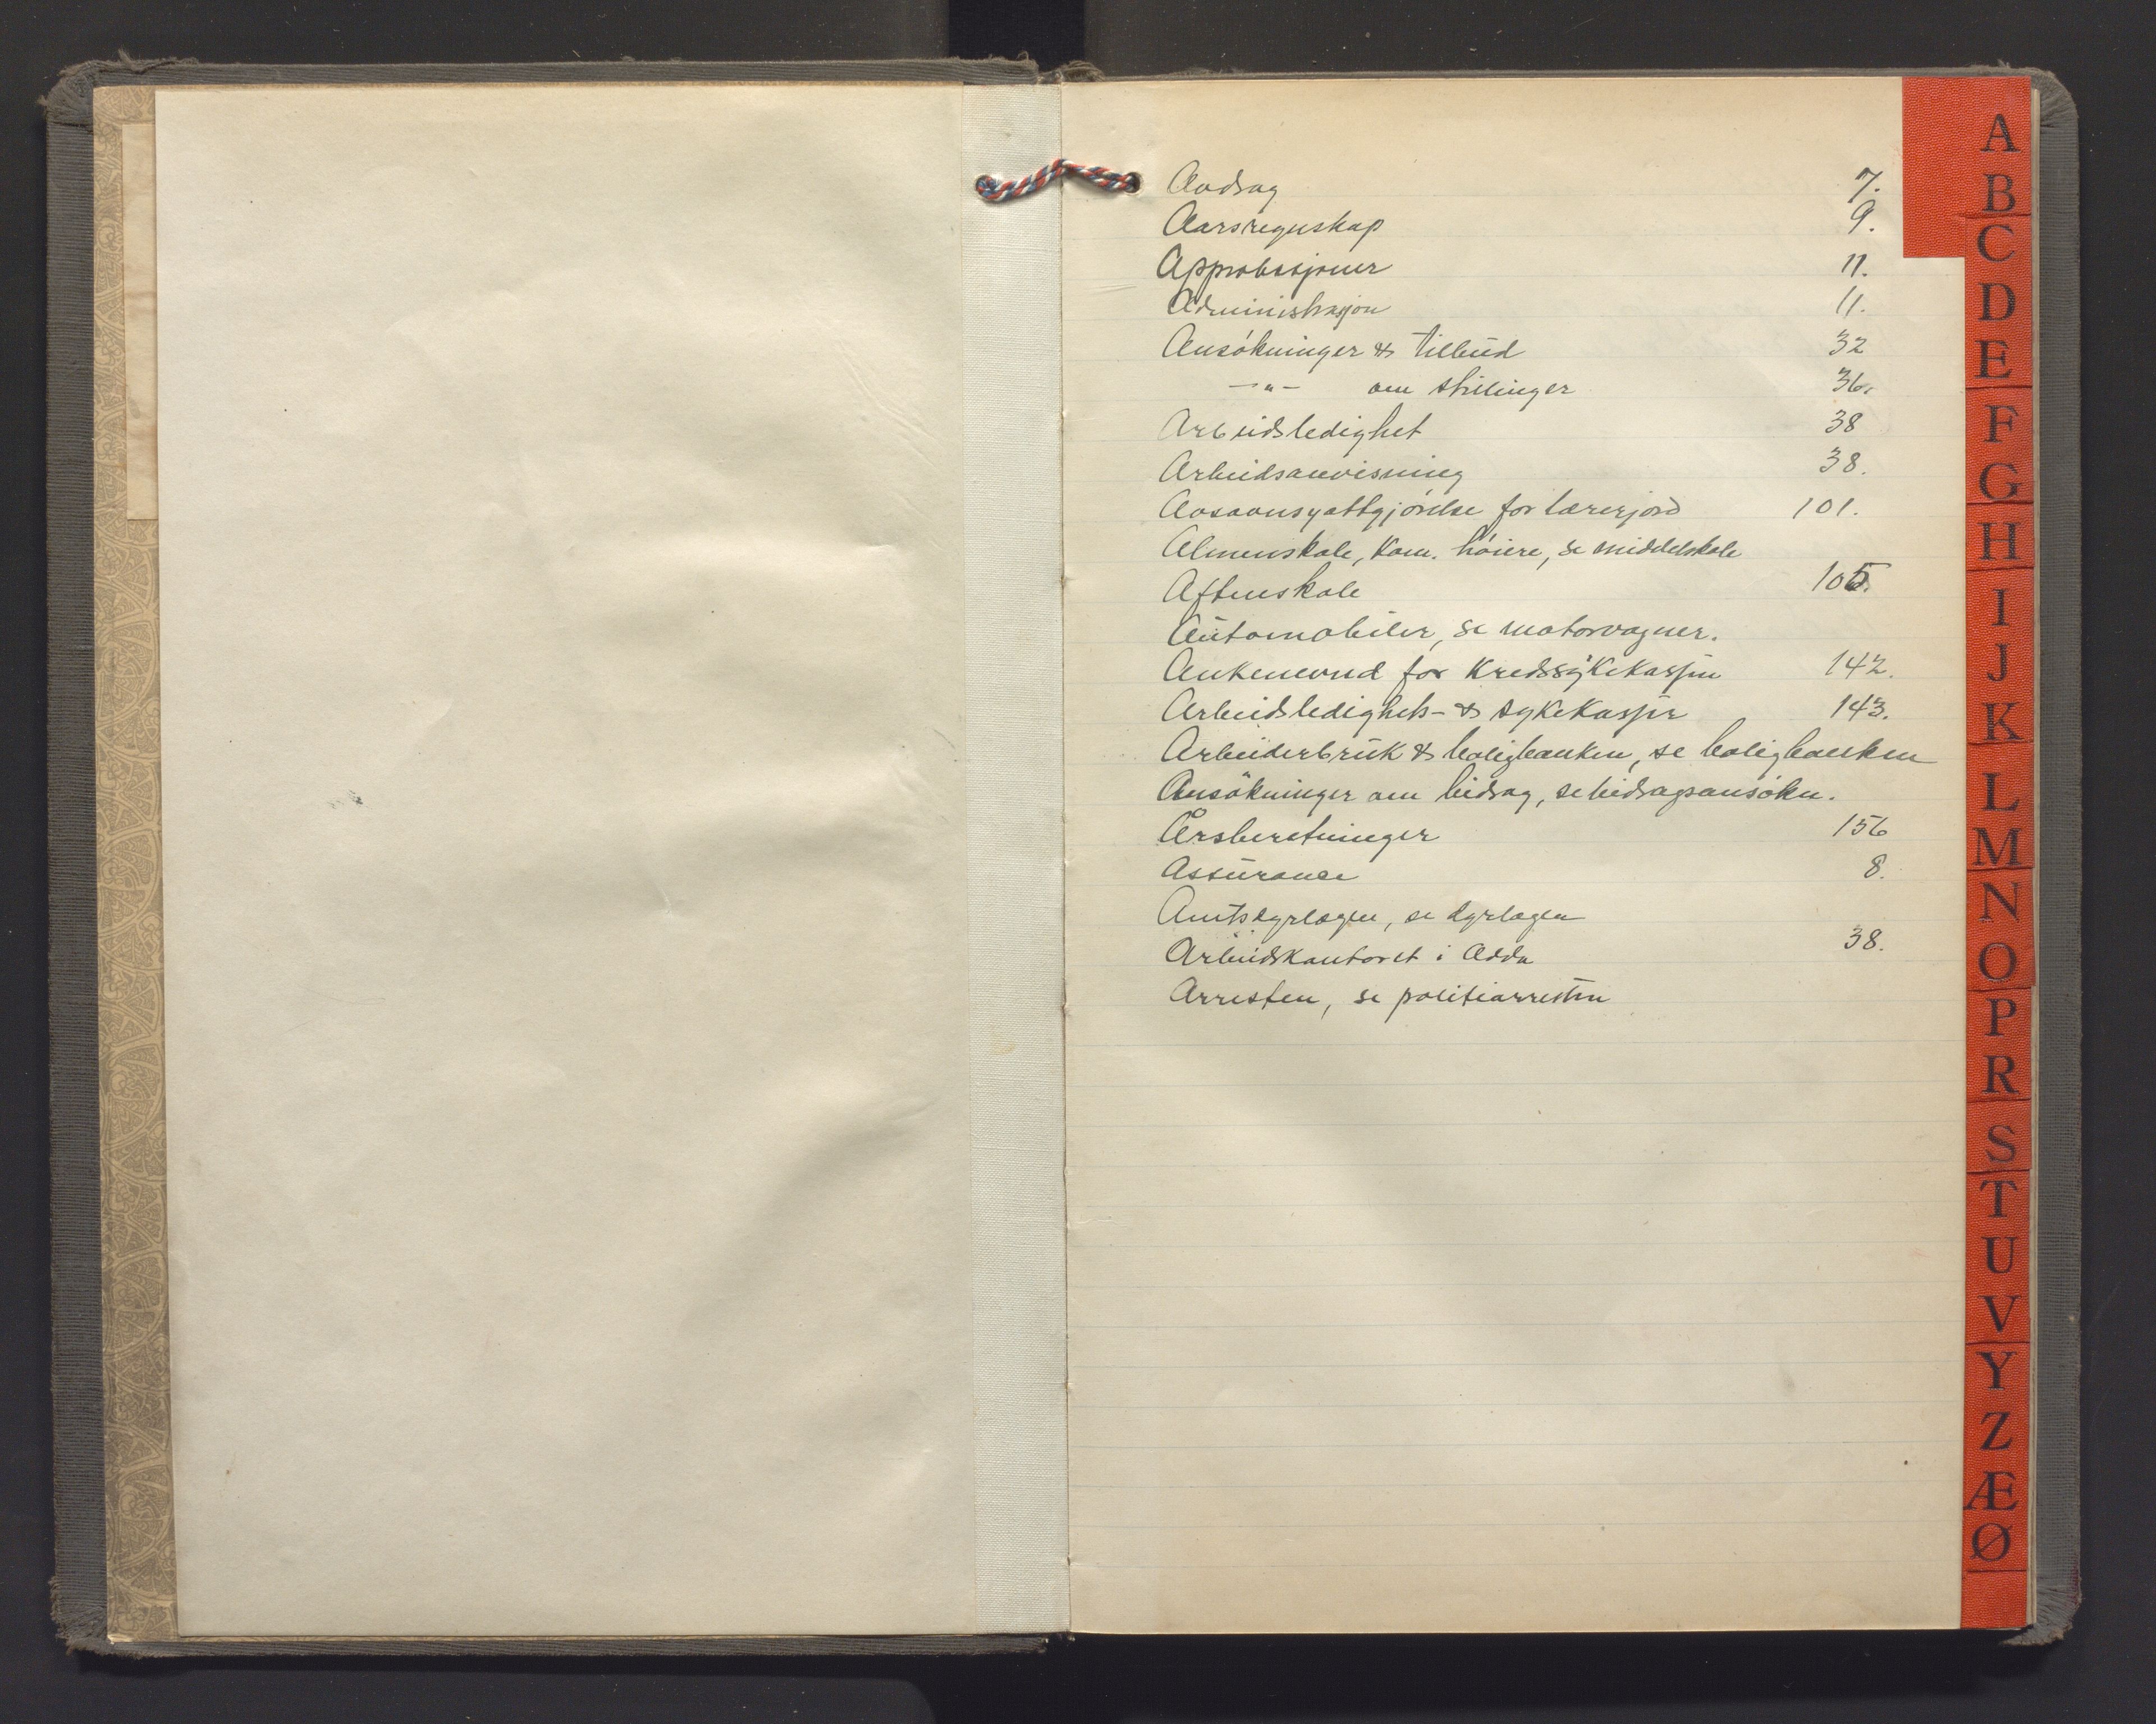 Avdrag 7.
Aarsregnskap 9.
Approbasjoner 11.
Administrasjon 11.
Ansökninger & tilbud 32
-"- om stillinger 36.
Arbeidsledighet 38
Arbeidsanvisning 38.
Avsavnsgottgjörelse for lærerjord 101.
Almenskole, kom. höiere, se middelskole
Aftenskole 105.
Automobiler, se motorvogner.
Ankenevnd for Kredssykekassen 142.
Arbeidsledighets- & sykekasser 143.
Arbeiderbruk & boligbanken, se boligbanken
Ansökninger om bidrag, se bidragsansökn.
Årsberetninger 156
Assurance 8.
Amtsdyrlægen, se dyrlægen
Arbeidskontoret i Odda 38.
Arresten, se politiarresten
A
B
C
D
E
F
G
H
I
J
K
L
M
N
O
P
R
S
T
U
V
Y
Z
Æ
Ø